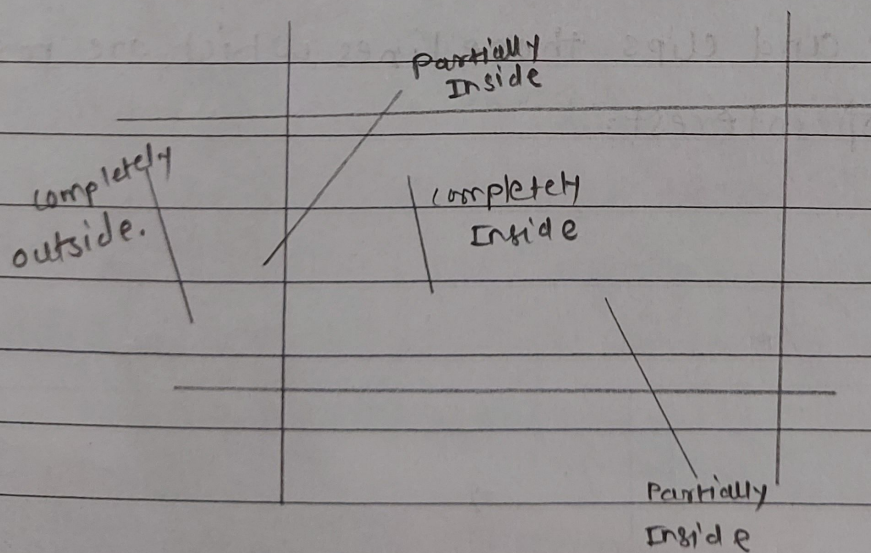 Partially
Inside
completely
outside.
completely
Inside
Partially
Inside